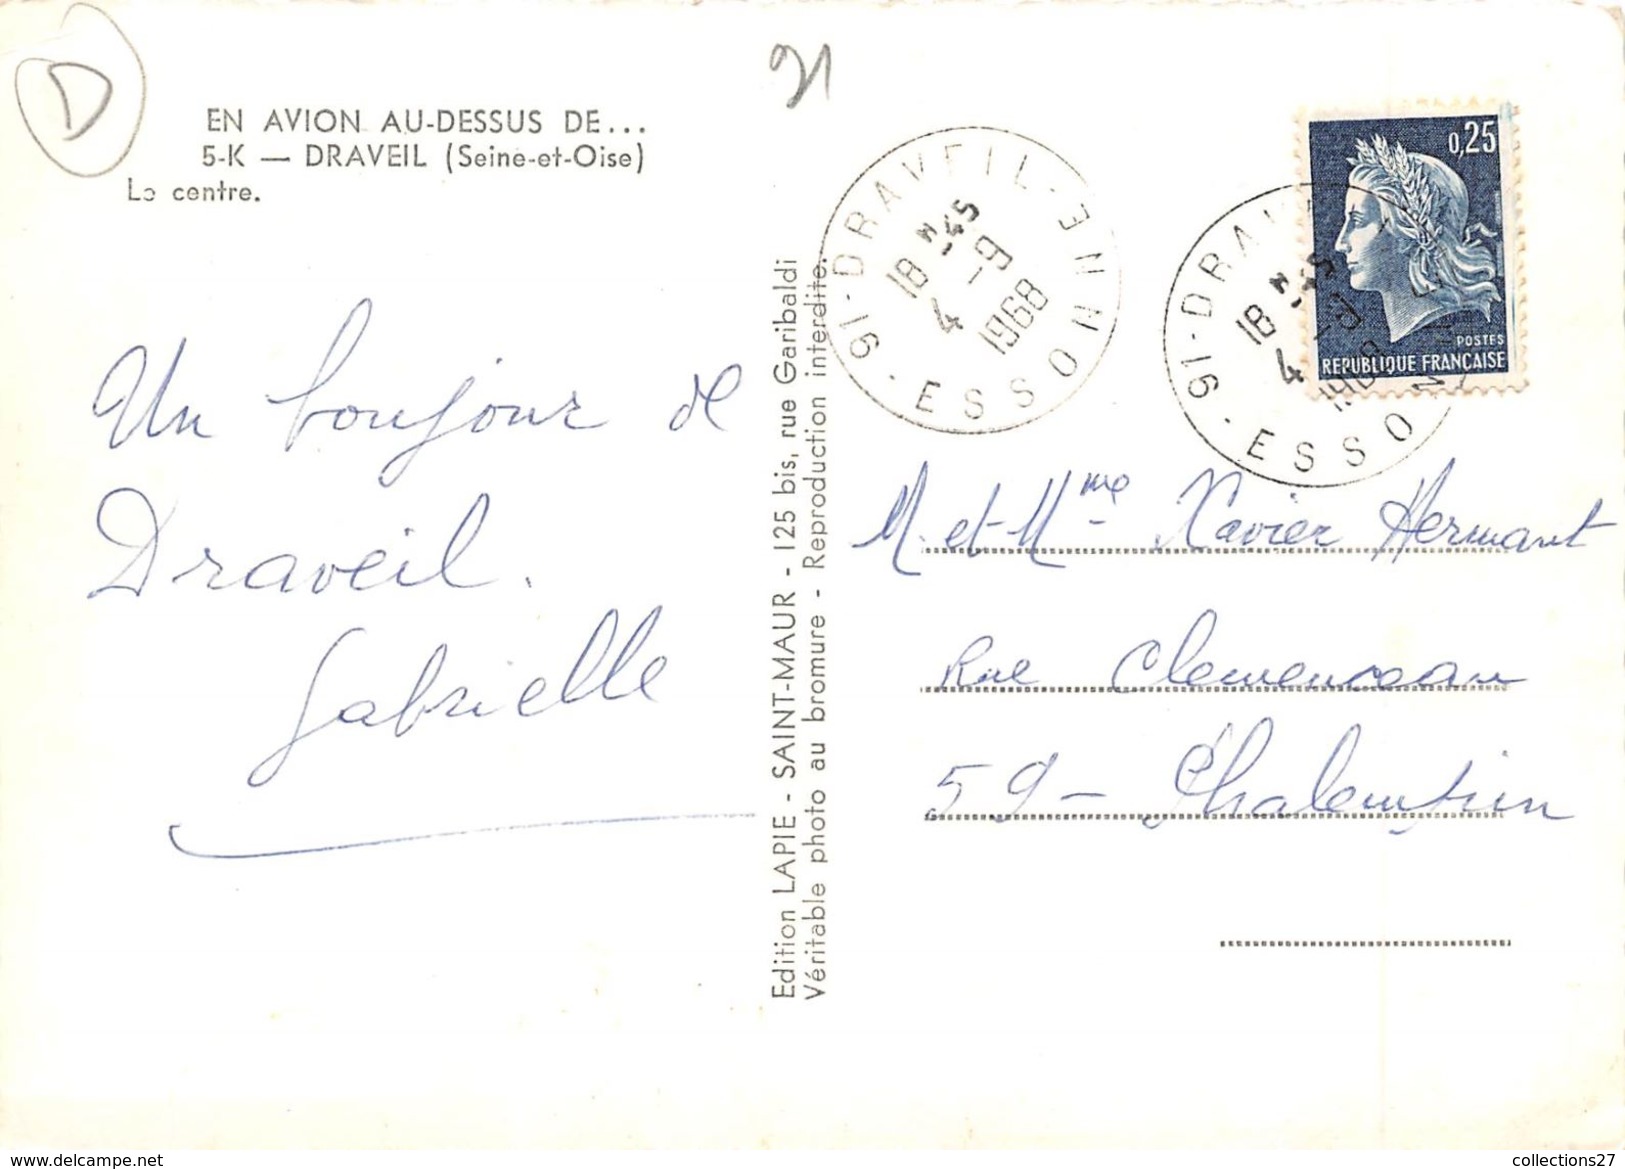 D
91
EN AVION AU-DESSUS DE...
5-K — DRAVEIL (Seine-et-Oise)
Le centre.
Un bonjour de
Draveil.
Gabrielle
Edition LAPIE - SAINT-MAUR - 125 bis, rue Garibaldi
Véritable photo au bromure - Reproduction interdite.
91-DRAVEIL-ESSONNE
18 H 45
4 - 9
1968
0,25
POSTES
REPUBLIQUE FRANÇAISE
91-DRAV
ESSON
18 H 45
4 - 9
1968
M. et Mme Xavier Hermant
Rue Clemenceau
59 - Phalempin
collections27
www.delcampe.net